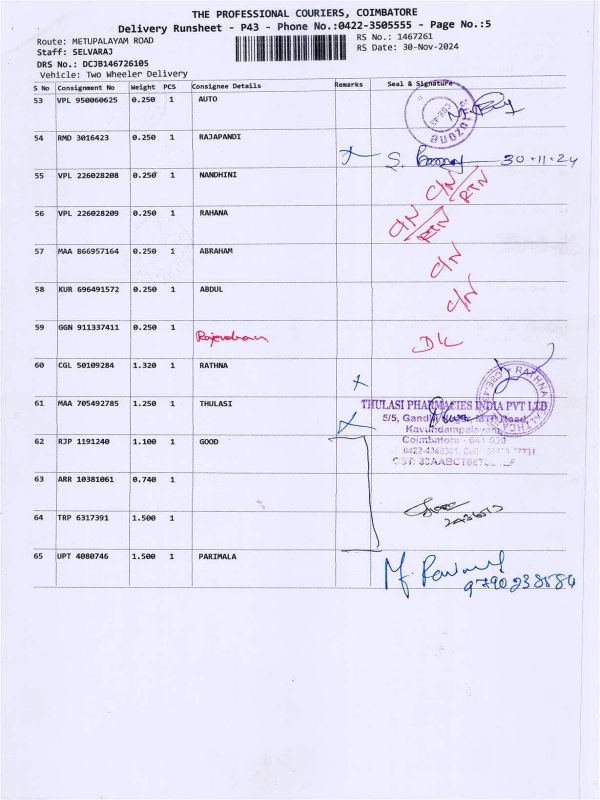 THE PROFESSIONAL COURIERS, COIMBATORE
Delivery Runsheet - P43 - Phone No.:0422-3505555 - Page No.:5
Route: METUPALAYAM ROAD
RS No.: 1467261
Staff: SELVARAJ
RS Date: 30-Nov-2024
DRS No.: DCJB146726105
Vehicle: Two Wheeler Delivery
S No Consignment No Weight PCS Consignee Details Remarks Seal & Signature
53 VPL 950060625 0.250 1 AUTO
54 RMD 3016423 0.250 1 RAJAPANDI
30-11-24
55 VPL 226028208 0.250 1 NANDHINI C/N/RTN
56 VPL 226028209 0.250 1 RAHANA C/N/RTN
57 MAA 866957164 0.250 1 ABRAHAM C/N
58 KUR 696491572 0.250 1 ABDUL C/N
59 GGN 911337411 0.250 1 Rajendran DL
60 CGL 50109284 1.320 1 RATHNA
61 MAA 705492785 1.250 1 THULASI
THULASI PHARMACIES INDIA PVT LTD
5/5, Gandhi Nagar, MTP Road,
Kavundampalayam
Coimbatore - 641 030
62 RJP 1191240 1.100 1 GOOD
63 ARR 10381061 0.740 1
64 TRP 6317391 1.500 1
65 UPT 4080746 1.500 1 PARIMALA
9790238584